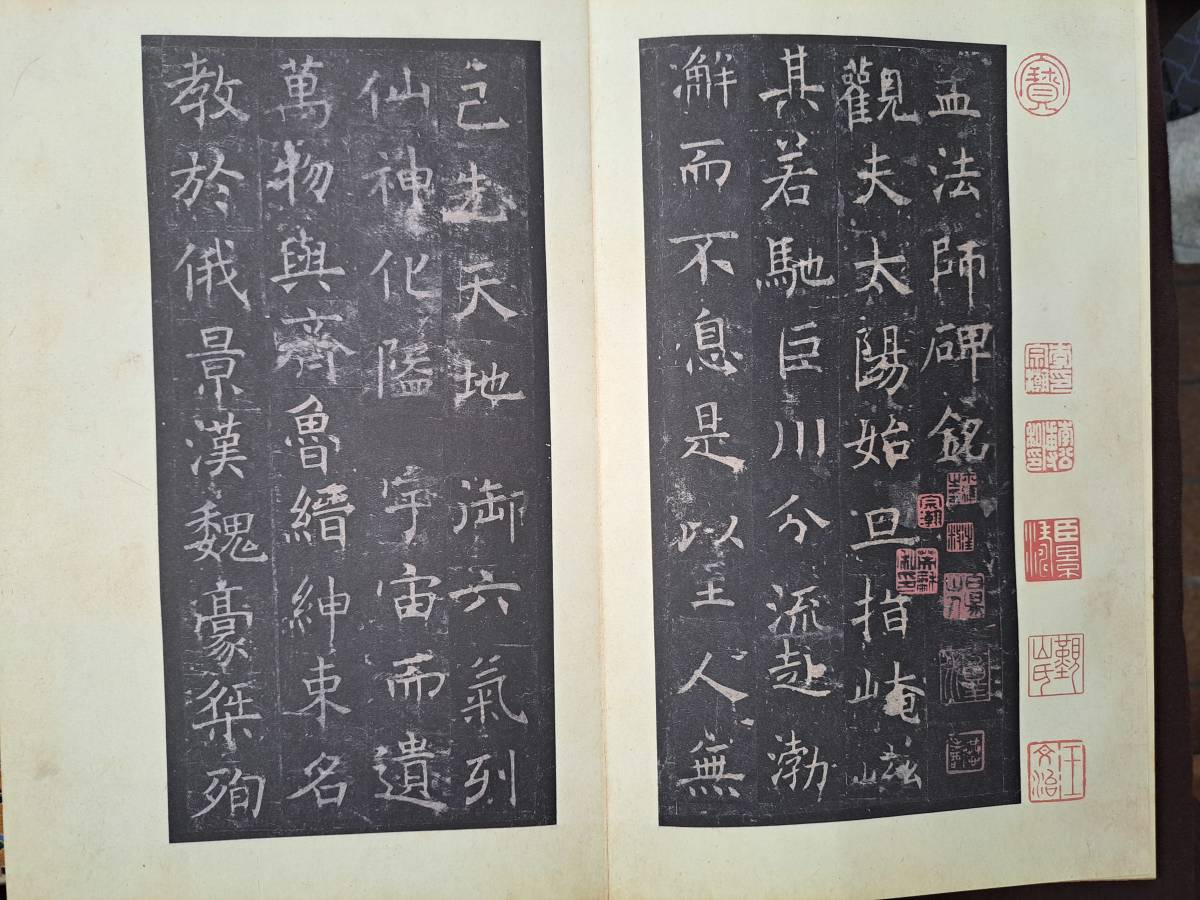 孟法師碑銘
觀夫太陽始旦指崦嵫
其若馳巨川分流赴渤
澥而不息是以至人無
己先天地御六氣列
仙神化隘宇宙而遺
萬物與齊魯縉紳東名
教於俄景漢魏豪桀殉
寶
臣景淳
觀山氏
汪文治